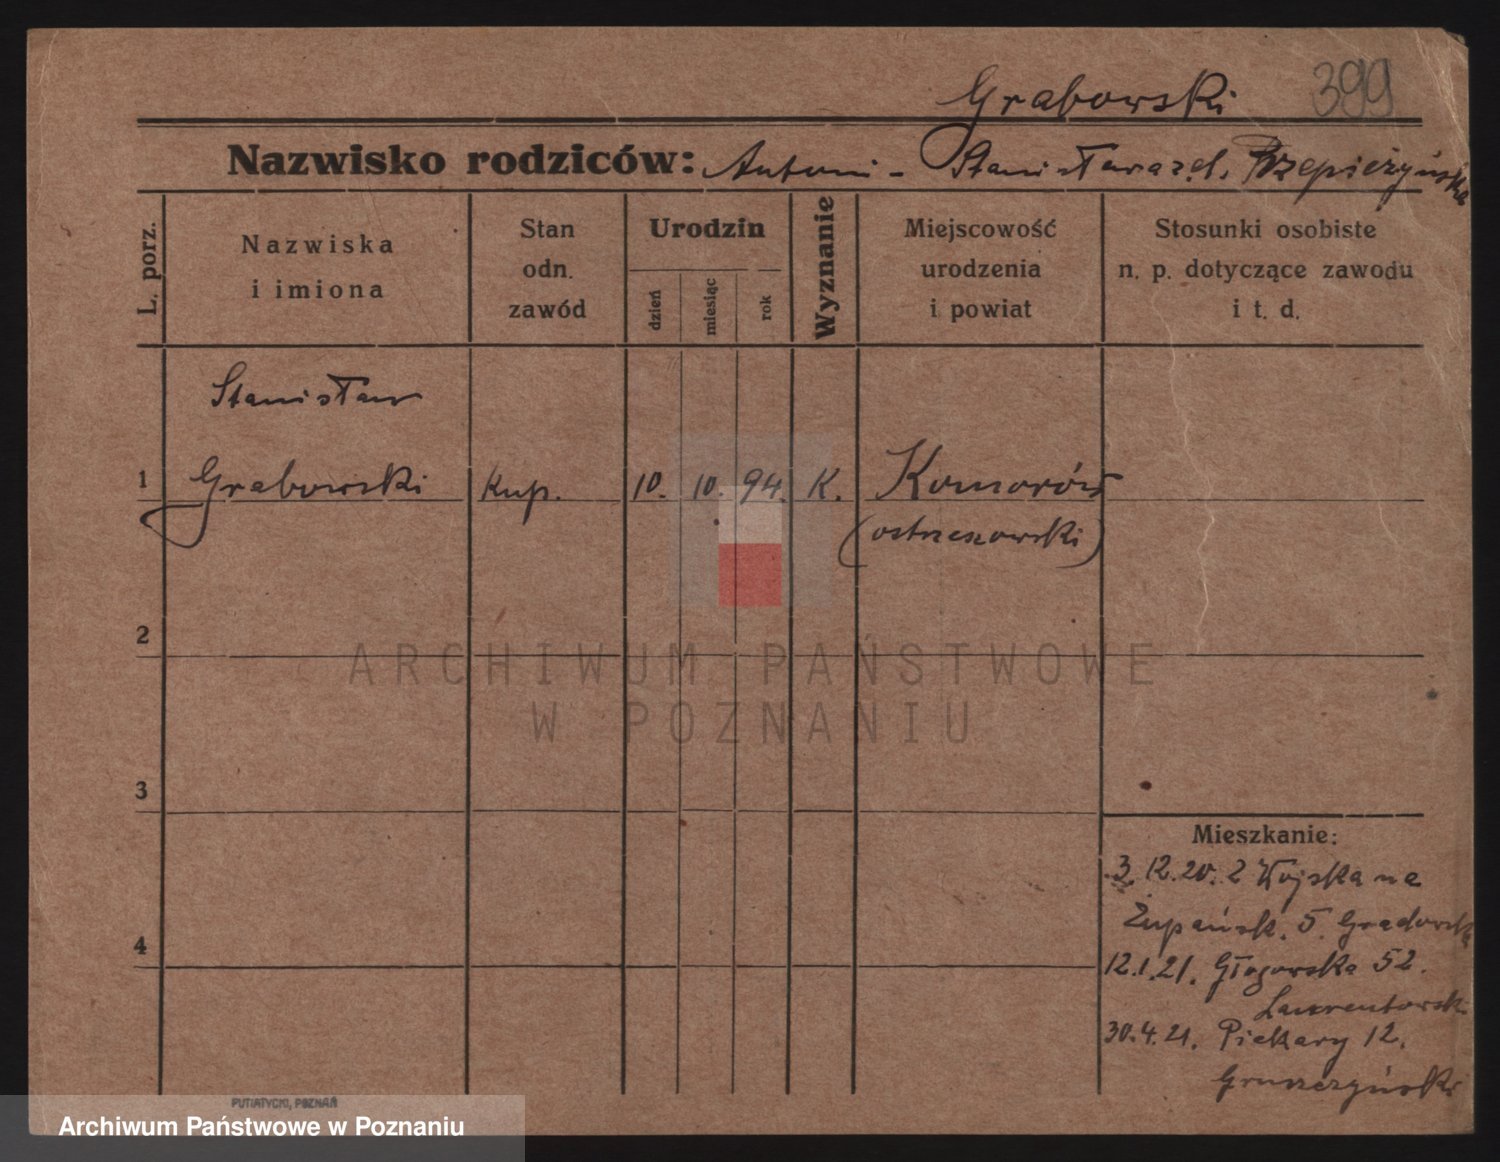 Grabowski 399
Nazwisko rodziców: Antoni - Stanisława zd. Przepierzyńska
L. porz.
Nazwiska
i imiona
Stan
odn.
zawód
Urodzin
dzień
miesiąc
rok
Wyznanie
Miejscowość
urodzenia
i powiat
Stosunki osobiste
n. p. dotyczące zawodu
i t. d.
Stanisław
1 Grabowski Kup. 10. 10. 94. K. Komorów
(ostrzeszowski)
2
ARCHIWUM PAŃSTWOWE
W POZNANIU
3
Mieszkanie:
3. 12. 20. Z Wojska na
Żupańsk. 5. Gradowski
4
12.1.21. Głogowska 52.
Laurentowski
30.4.21. Piekary 12.
Gruszczyński
PUTIATYCKI, POZNAŃ
Archiwum Państwowe w Poznaniu